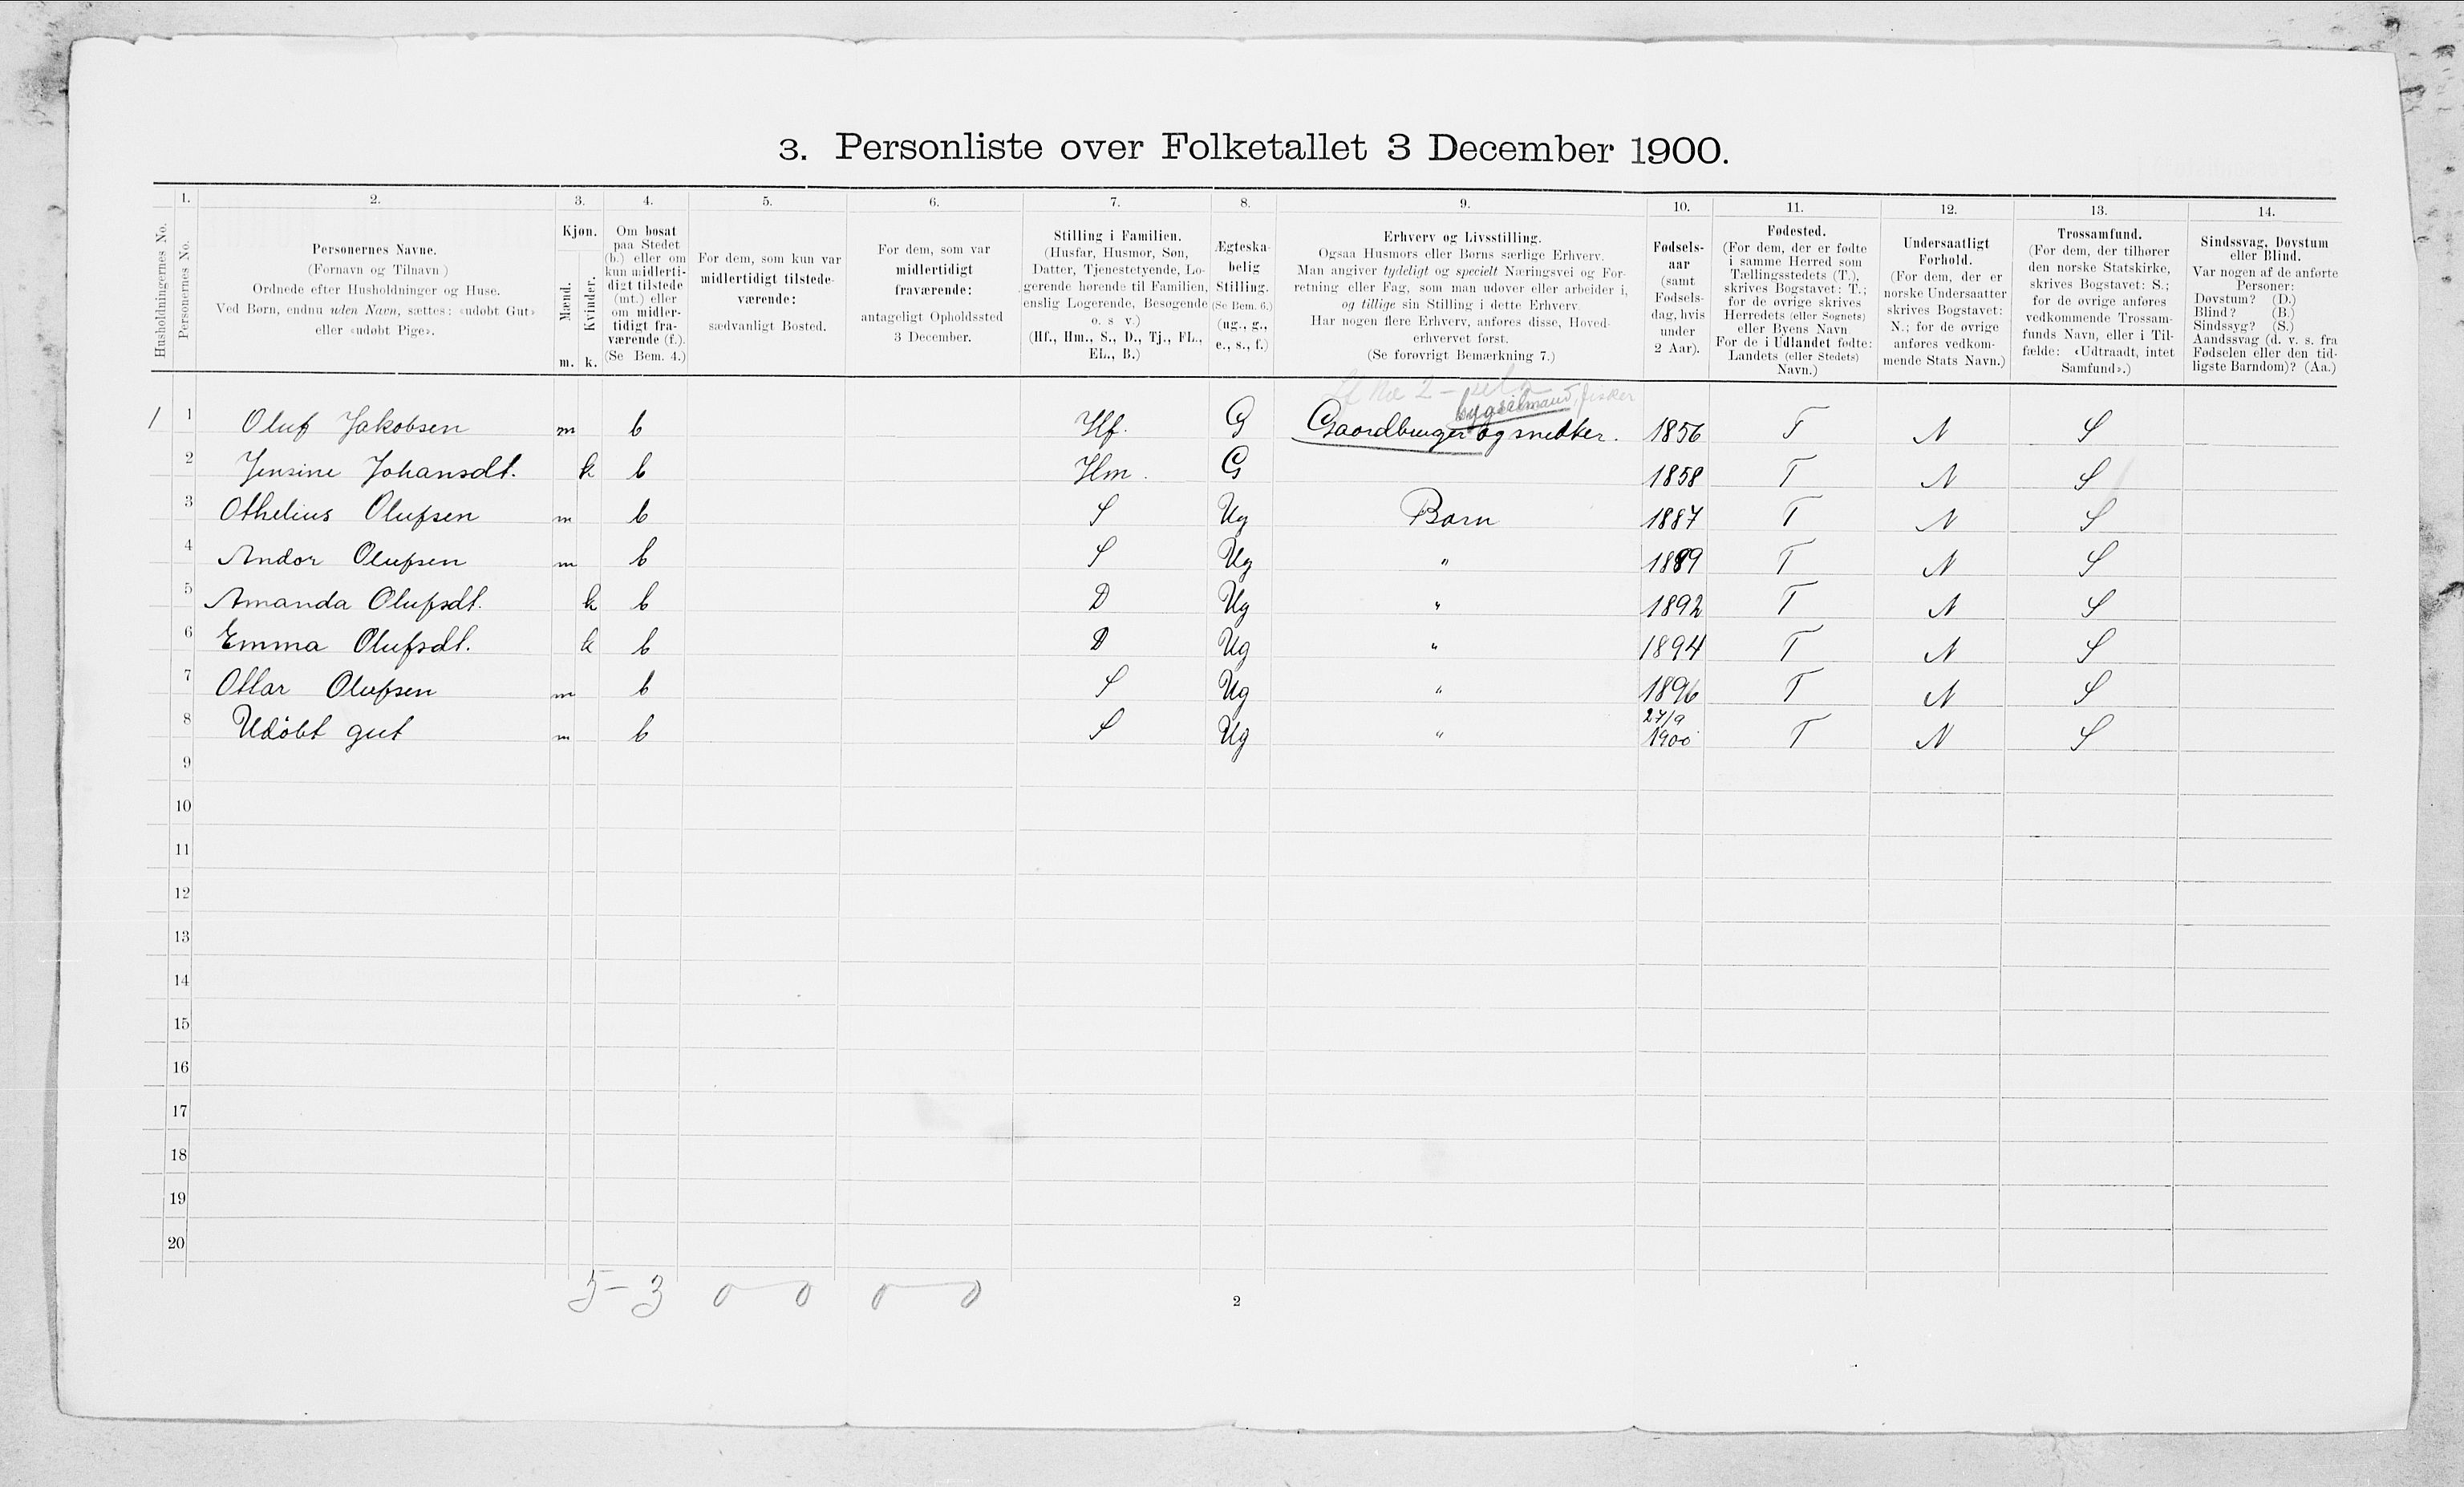 3. Personliste over Folketallet 3 December 1900.
Husholdningernes No.
1.
Personernes No.
2.
Personernes Navne.
(Fornavn og Tilnavn)
Ordnede efter Husholdninger og Huse.
Ved Børn, endnu uden Navn, sættes: «udøbt Gut»
eller «udøbt Pige».
3.
Kjøn.
Mænd.
Kvinder.
m. k.
4.
Om bosat
paa Stedet
(b.) eller om
kun midlerti-
digt tilstede
(mt.) eller
om midler-
tidigt fra-
værende (f.).
(Se Bem. 4.)
5.
For dem, som kun var
midlertidigt tilstede-
værende:
sædvanligt Bosted.
6.
For dem, som var
midlertidigt
fraværende:
antageligt Opholdssted
3 December.
7.
Stilling i Familien.
(Husfar, Husmor, Søn,
Datter, Tjenestetyende, Lo-
gerende hørende til Familien,
enslig Logerende, Besøgende
o. s v.)
(Hf., Hm., S., D., Tj., FL.,
EL., B.)
8.
Ægteska-
belig
Stilling.
(Se Bem. 6.)
(ug., g.,
e., s., f.)
9.
Erhverv og Livsstilling.
Ogsaa Husmors eller Børns særlige Erhverv.
Man angiver tydeligt og specielt Næringsvei og For-
retning eller Fag, som man udøver eller arbeider i,
og tillige sin Stilling i dette Erhverv.
Har nogen flere Erhverv, anføres disse, Hoved-
erhvervet først.
(Se forøvrigt Bemærkning 7.)
10.
Fødsels-
aar
(samt
Fødsels-
dag, hvis
under
2 Aar).
11.
Fødested.
(For dem, der er fødte
i samme Herred som
Tællingsstedets (T.),
skrives Bogstavet: T.;
for de øvrige skrives
Herredets (eller Sognets)
eller Byens Navn
For de i Udlandet fødte:
Landets (eller Stedets)
Navn.)
12.
Undersaatligt
Forhold.
(For dem, der er
norske Undersaatter
skrives Bogstavet:
N.; for de øvrige
anføres vedkom-
mende Stats Navn.)
13.
Trossamfund.
(For dem, der tilhører
den norske Statskirke,
skrives Bogstavet: S.;
for de øvrige anføres
vedkommende Trossam-
funds Navn, eller i Til-
fælde: «Udtraadt, intet
Samfund».)
14.
Sindssvag, Døvstum
eller Blind.
Var nogen af de anførte
Personer:
Døvstum? (D.)
Blind? (B.)
Sindssyg? (S.)
Aandssvag (d. v. s. fra
Fødselen eller den tid-
ligste Barndom)? (Aa.)
bygselmand, fisker
1 1 Oluf Jakobsen m b Hf. G Gaardbruger og snedker. 1856 T N S
2 Jensine Johansdt. k b Hm. G 1858 T N S
3 Othelius Olufsen m b S Ug Barn 1887 T N S
4 Andor Olufsen m b S Ug " 1889 T N S
5 Amanda Olufsdt. k b D Ug " 1892 T N S
6 Emma Olufsdt. k b D Ug " 1894 T N S
7 Ottar Olufsen m b S Ug " 1896 T N S
8 Udøbt gut m b S Ug " 27/9 1900 T N S
9
10
11
12
13
14
15
16
17
18
19
20
5 - 3 0 0 0 0
2